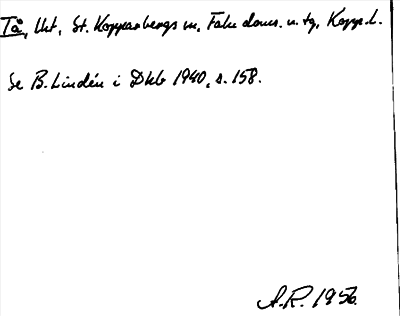 Tå, Utt, St. Kopparbergs sn, Falu doms. o. tg, Kopp.L.
Se B. Lindén i Dhb 1940, s. 158.
A.R. 1956.